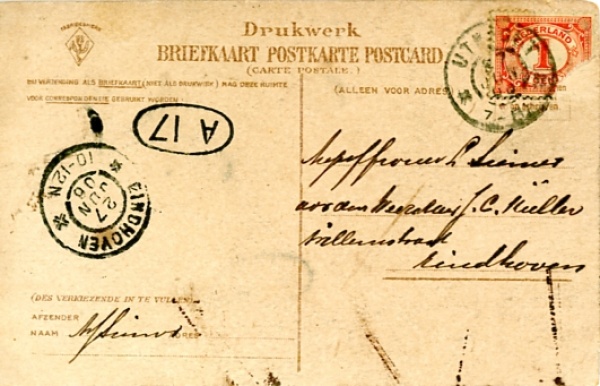 FABRIEKSMERK
Drukwerk
BRIEFKAART POSTKARTE POSTCARD
(CARTE POSTALE.)
BIJ VERZENDING ALS BRIEFKAART (NIET ALS DRUKWERK) MAG DEZE RUIMTE
VOOR CORRESPONDENTIE GEBRUIKT WORDEN
(ALLEEN VOOR ADRES)
NEDERLAND
1
UTRECHT
A 17
EINDHOVEN
27 JUN 06
10-12N
Mejuffrouw
J.C. Müller
Willemstraat
Eindhoven
(DES VERKIEZENDE IN TE VULLEN)
AFZENDER
NAAM
ADRES